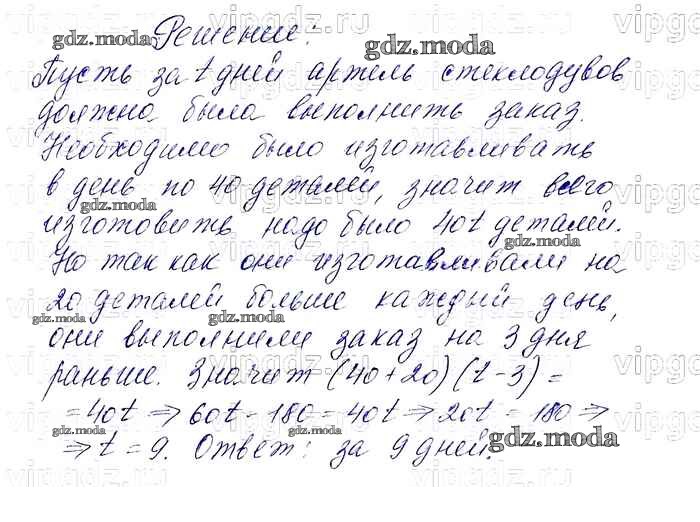 Решение:
Пусть за t дней артель стеклодувов
должна была выполнить заказ.
Необходимо было изготавливать
в день по 40 деталей, значит всего
изготовить надо было 40t деталей.
Но так как они изготавливали на
20 деталей больше каждый день,
они выполнили заказ на 3 дня
раньше. Значит (40+20)(t-3)=
=40t ⇒ 60t-180=40t ⇒ 20t=180 ⇒
⇒ t=9. Ответ: за 9 дней.
gdz.moda
gdz.moda
gdz.moda
gdz.moda
gdz.moda
gdz.moda
gdz.moda
gdz.moda
gdz.moda